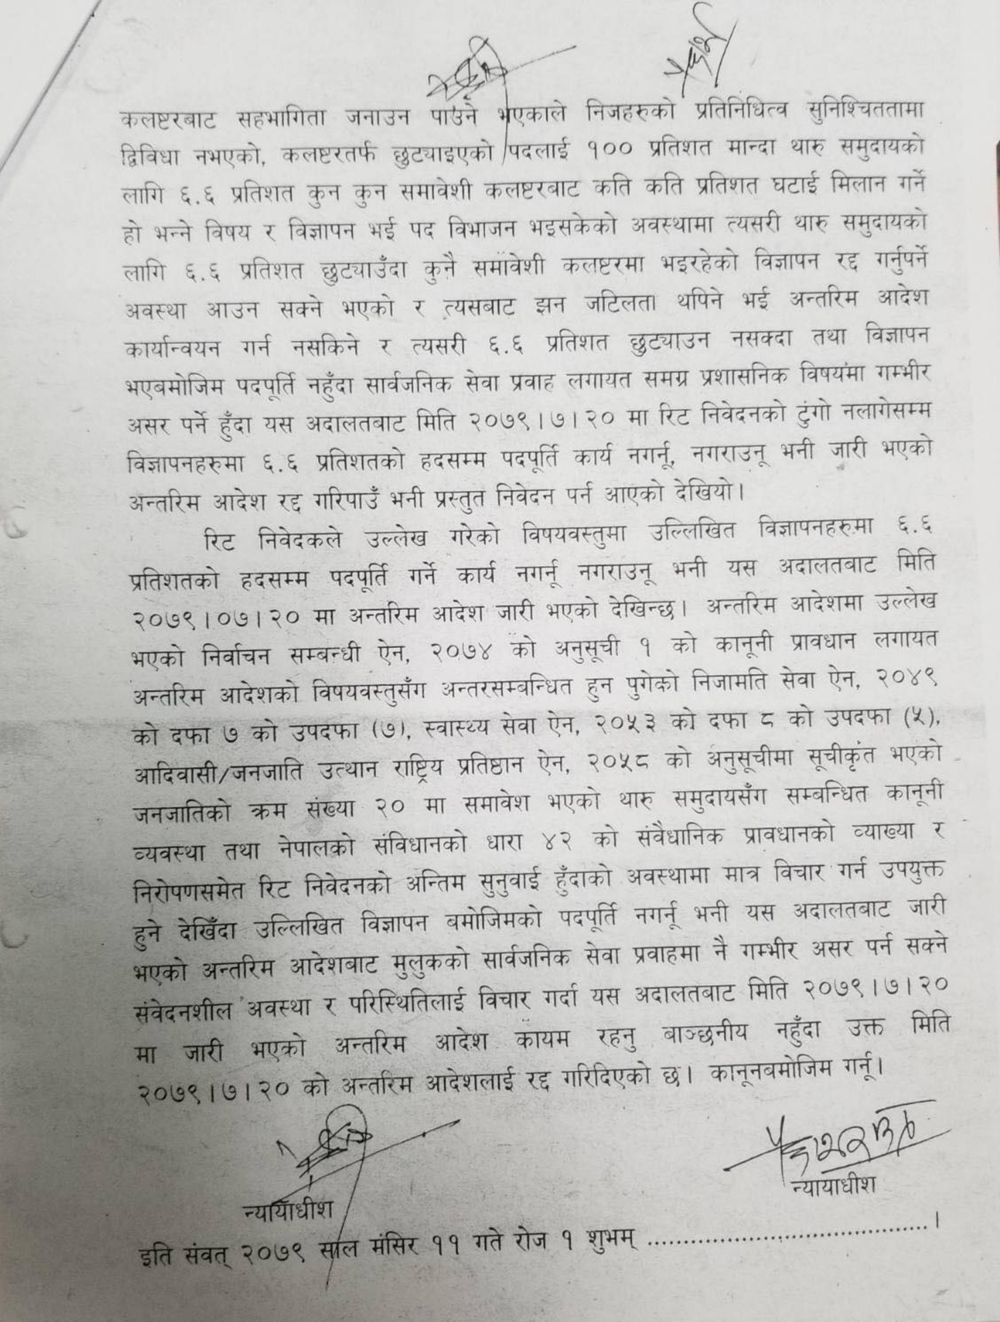 कलष्टरबाट सहभागिता जनाउन पाउने भएकाले निजहरुको प्रतिनिधित्व सुनिश्चिततामा
द्विविधा नभएको, कलष्टरतर्फ छुट्याइएको पदलाई १०० प्रतिशत मान्दा थारु समुदायको
लागि ६.६ प्रतिशत कुन कुन समावेशी कलष्टरबाट कति कति प्रतिशत घटाई मिलान गर्ने
हो भन्ने विषय र विज्ञापन भई पद विभाजन भइसकेको अवस्थामा त्यसरी थारु समुदायको
लागि ६.६ प्रतिशत छुट्याउँदा कुनै समावेशी कलष्टरमा भइरहेको विज्ञापन रद्द गर्नुपर्ने
अवस्था आउन सक्ने भएको र त्यसबाट झन जटिलता थपिने भई अन्तरिम आदेश
कार्यान्वयन गर्न नसकिने र त्यसरी ६.६ प्रतिशत छुट्याउन नसक्दा तथा विज्ञापन
भएबमोजिम पदपूर्ति नहुँदा सार्वजनिक सेवा प्रवाह लगायत समग्र प्रशासनिक विषयमा गम्भीर
असर पर्ने हुँदा यस अदालतबाट मिति २०७९।७।२० मा रिट निवेदनको टुंगो नलागेसम्म
विज्ञापनहरुमा ६.६ प्रतिशतको हदसम्म पदपूर्ति कार्य नगर्नू, नगराउनू भनी जारी भएको
अन्तरिम आदेश रद्द गरिपाउँ भनी प्रस्तुत निवेदन पर्न आएको देखियो।
रिट निवेदकले उल्लेख गरेको विषयवस्तुमा उल्लिखित विज्ञापनहरुमा ६.६
प्रतिशतको हदसम्म पदपूर्ति गर्ने कार्य नगर्नू नगराउनू भनी यस अदालतबाट मिति
२०७९।०७।२० मा अन्तरिम आदेश जारी भएको देखिन्छ। अन्तरिम आदेशमा उल्लेख
भएको निर्वाचन सम्बन्धी ऐन, २०७४ को अनुसूची १ को कानूनी प्रावधान लगायत
अन्तरिम आदेशको विषयवस्तुसँग अन्तरसम्बन्धित हुन पुगेको निजामति सेवा ऐन, २०४९
को दफा ७ को उपदफा (७), स्वास्थ्य सेवा ऐन, २०५३ को दफा ८ को उपदफा (५),
आदिवासी/जनजाति उत्थान राष्ट्रिय प्रतिष्ठान ऐन, २०५८ को अनुसूचीमा सूचीकृत भएको
जनजातिको क्रम संख्या २० मा समावेश भएको थारु समुदायसँग सम्बन्धित कानूनी
व्यवस्था तथा नेपालको संविधानको धारा ४२ को संवैधानिक प्रावधानको व्याख्या र
निरोपणसमेत रिट निवेदनको अन्तिम सुनुवाई हुँदाको अवस्थामा मात्र विचार गर्न उपयुक्त
हुने देखिँदा उल्लिखित विज्ञापन बमोजिमको पदपूर्ति नगर्नू भनी यस अदालतबाट जारी
भएको अन्तरिम आदेशबाट मुलुकको सार्वजनिक सेवा प्रवाहमा नै गम्भीर असर पर्न सक्ने
संवेदनशील अवस्था र परिस्थितिलाई विचार गर्दा यस अदालतबाट मिति २०७९।७।२०
मा जारी भएको अन्तरिम आदेश कायम रहनु बाञ्छनीय नहुँदा उक्त मिति
२०७९।७।२० को अन्तरिम आदेशलाई रद्द गरिदिएको छ। कानूनबमोजिम गर्नू।
न्यायाधीश
न्यायाधीश
इति संवत् २०७९ साल मंसिर ११ गते रोज १ शुभम् ....................................।